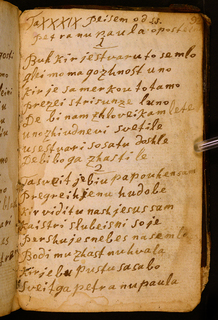 Ta XXXIX Peisem od ss.
petra nu paula apostl
1
Buh kir je stvaru to semlo
gli mo ma gozhnost uno
kir je sa merkou to tamo
prezei stri sunze luno
De bi nam zhloveikam let
uno zhiudnevi sveitile
useistvari so satu dashle
De bi boga zhastile
2
Ta sveit je biu pa pounhensam
Pregreih jenu hudobe
Kir viditu nash jesus sam
Kaistri slubeisni soje
Pershu je s nebes na semle
Bodi mu zhast nu hvala
Kir je biu pustu sa sabo
Sveitga petra nu paula